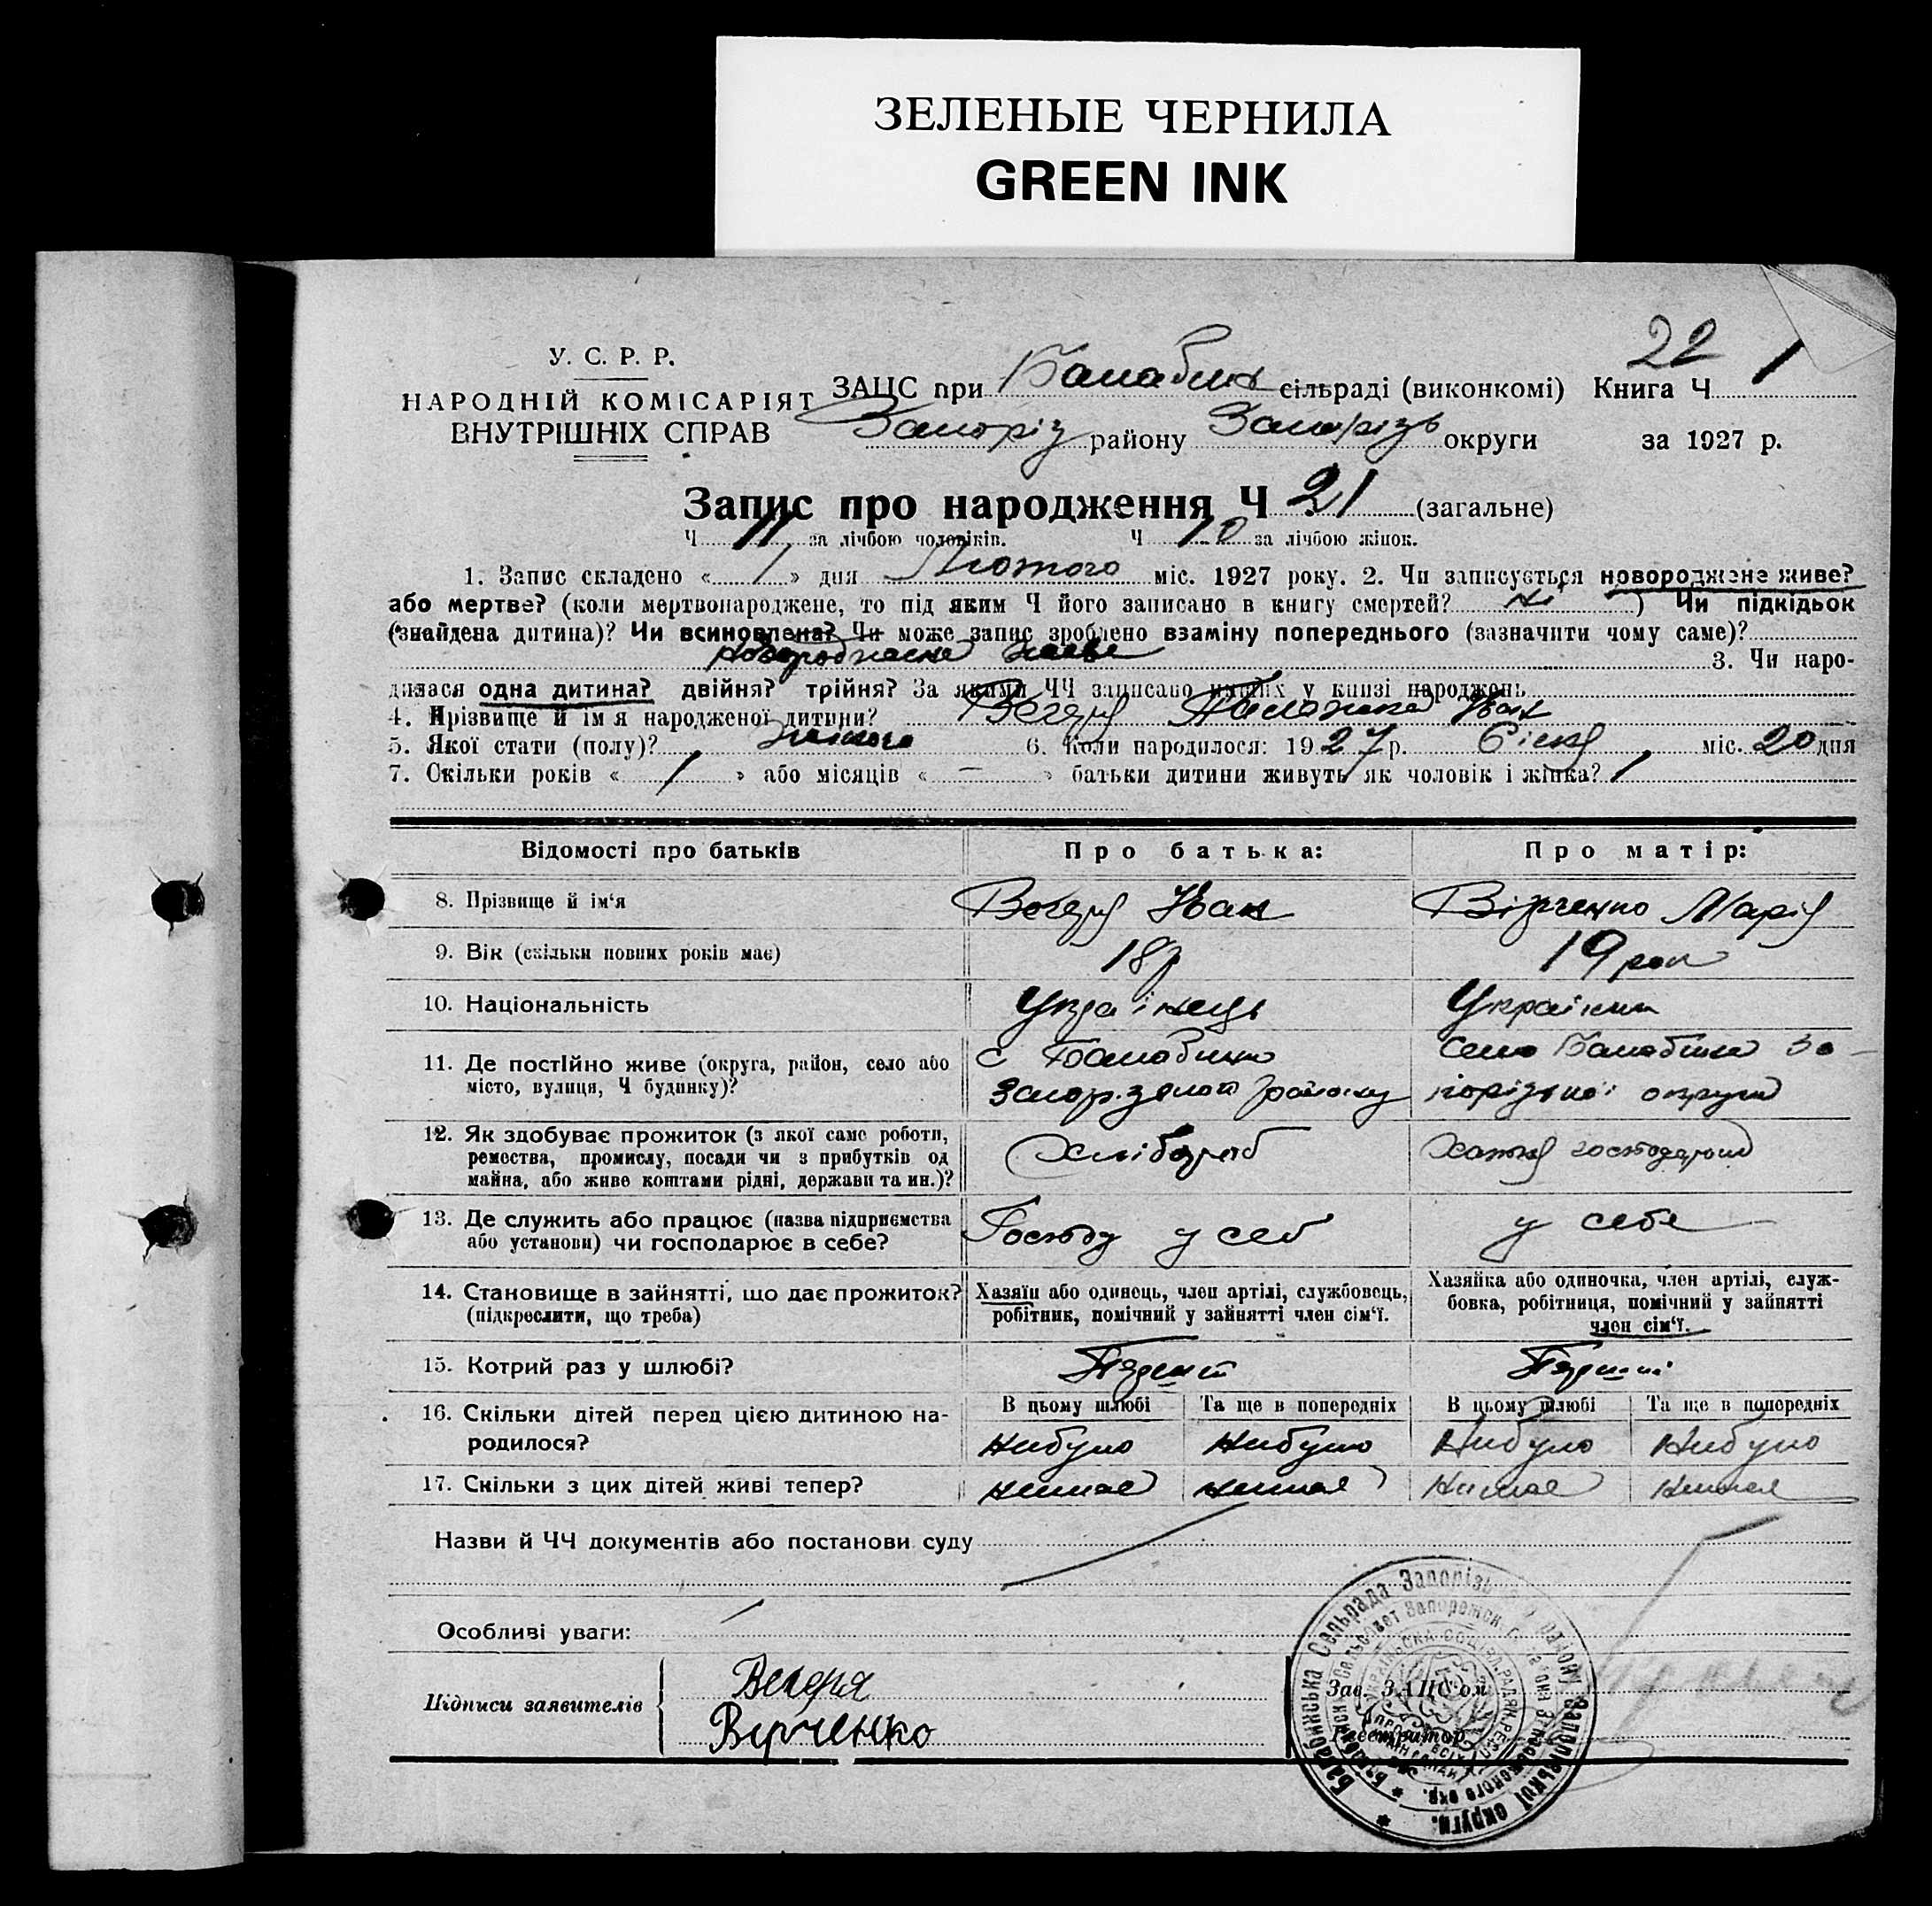 ЗЕЛЕНЫЕ ЧЕРНИЛА
GREEN INK
22
У. С. Р. Р.
НАРОДНІЙ КОМІСАРІЯТ
ВНУТРІШНІХ СПРАВ
ЗАЦС при Балабинс сільраді (виконкомі) Книга Ч 1
Запоріз району Запорізь округи за 1927 р.
Запис про народження Ч 21 (загальне)
Ч 11 за лічбою чоловіків. Ч 10 за лічбою жінок.
1. Запис складено « 1 » дня Лютого міс. 1927 року. 2. Чи записується новороджене живе?
або мертве? (коли мертвонароджене, то під яким Ч його записано в книгу смертей? ні ) Чи підкідьок
(знайдена дитина)? Чи всиновлена? Чи може запис зроблено взаміну попереднього (зазначити чому саме)?
новороджене живе 3. Чи наро-
дилася одна дитина? двійня? трійня? За якими ЧЧ записано инших у книзі народжень
4. Прізвище й ім'я народженої дитини? Вечеря Пилажка Іван
5. Якої стати (полу)? Жіночого 6. Коли народилося: 1927 р. Січня міс. 20 дня
7. Скільки років « 1 » або місяців « — » батьки дитини живуть як чоловік і жінка? 1
Відомості про батьків Про батька: Про матір:
8. Прізвище й ім'я Вечеря Іван Вірченко Марія
9. Вік (скільки повних років має) 18 р 19 рок
10. Національність Українець Українка
11. Де постійно живе (округа, район, село або місто, вулиця, Ч будинку)?
с Балабинка
району
село Балабинка За-
порізької округи
12. Як здобуває прожиток (з якої саме роботи, ремества, промислу, посади чи з прибутків од майна, або живе коштами рідні, держави та ин.)?
Хлібороб
Хатня господарка
13. Де служить або працює (назва підприємства або установи) чи господарює в себе?
Господ у себ
у себе
14. Становище в зайнятті, що дає прожиток? (підкреслити, що треба)
Хазяїн або одинець, член артілі, службовець, робітник, помічний у зайнятті член сім'ї.
Хазяйка або одиночка, член артілі, служ-
бовка, робітниця, помічний у зайнятті
член сім'ї.
15. Котрий раз у шлюбі? Перший Перший
16. Скільки дітей перед цією дитиною на-
родилося?
В цьому шлюбі Та ще в попередніх В цьому шлюбі Та ще в попередніх
небуло небуло небуло небуло
17. Скільки з цих дітей живі тепер? немає немає немає немає
Назви й ЧЧ документів або постанови суду
Особливі уваги:
Підписи заявителів
Вечеря
Вірченко
Зав. ЗАЦС'ом
Реєстратор
Балабинська Сельрада Запорізького району Запорізької округи.